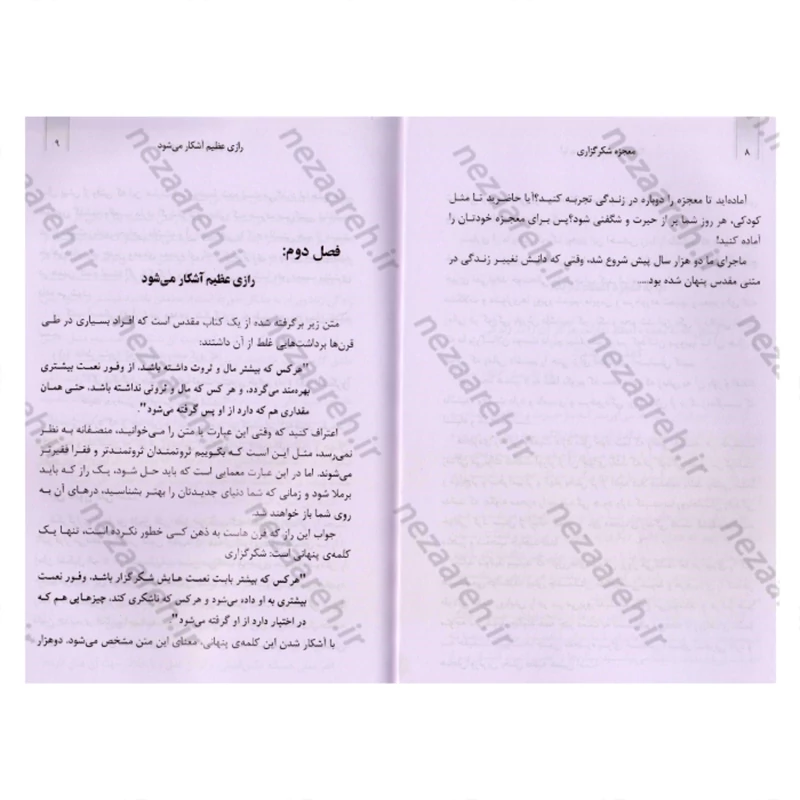 ۸
معجزه شکرگزاری
آماده‌اید تا معجزه را دوباره در زندگی تجربه کنید؟آیا حاضرید تا مثل
کودکی، هر روز شما پر از حیرت و شگفتی شود؟پس برای معجزه خودتان را
آماده کنید!
ماجرای ما دو هزار سال پیش شروع شد، وقتی که دانش تغییر زندگی در
متنی مقدس پنهان شده بود....
رازی عظیم آشکار می‌شود
۹
فصل دوم:
رازی عظیم آشکار می‌شود
متن زیر برگرفته شده از یک کتاب مقدس است که افراد بسیاری در طی
قرن‌ها برداشت‌هایی غلط از آن داشتند:
"هرکس که بیشتر مال و ثروت داشته باشد، از وفور نعمت بیشتری
بهره‌مند می‌گردد، و هر کس که مال و ثروتی نداشته باشد، حتی همان
مقداری هم که دارد از او پس گرفته می‌شود".
اعتراف کنید که وقتی این عبارت یا متن را می‌خوانید، منصفانه به نظر
نمی‌رسد، مثل این است که بگوییم ثروتمندان ثروتمندتر و فقرا فقیرتر
می‌شوند. اما در این عبارت معمایی است که باید حل شود، یک راز که باید
برملا شود و زمانی که شما دنیای جدیدتان را بهتر بشناسید، درهای آن به
روی شما باز خواهند شد.
جواب این راز که قرن هاست به ذهن کسی خطور نکرده است، تنها یک
کلمه‌ی پنهانی است: شکرگزاری
"هرکس که بیشتر بابت نعمت هایش شکرگزار باشد، وفور نعمت
بیشتری به او داده می‌شود و هرکس که ناشکری کند، چیزهایی هم که
در اختیار دارد از او گرفته می‌شود"
با آشکار شدن این کلمه‌ی پنهانی، معنای این متن مشخص می‌شود. دوهزار
nezaareh.ir
nezaareh.ir
nezaareh.ir
nezaareh.ir
nezaareh.ir
nezaareh.ir
nezaareh.ir